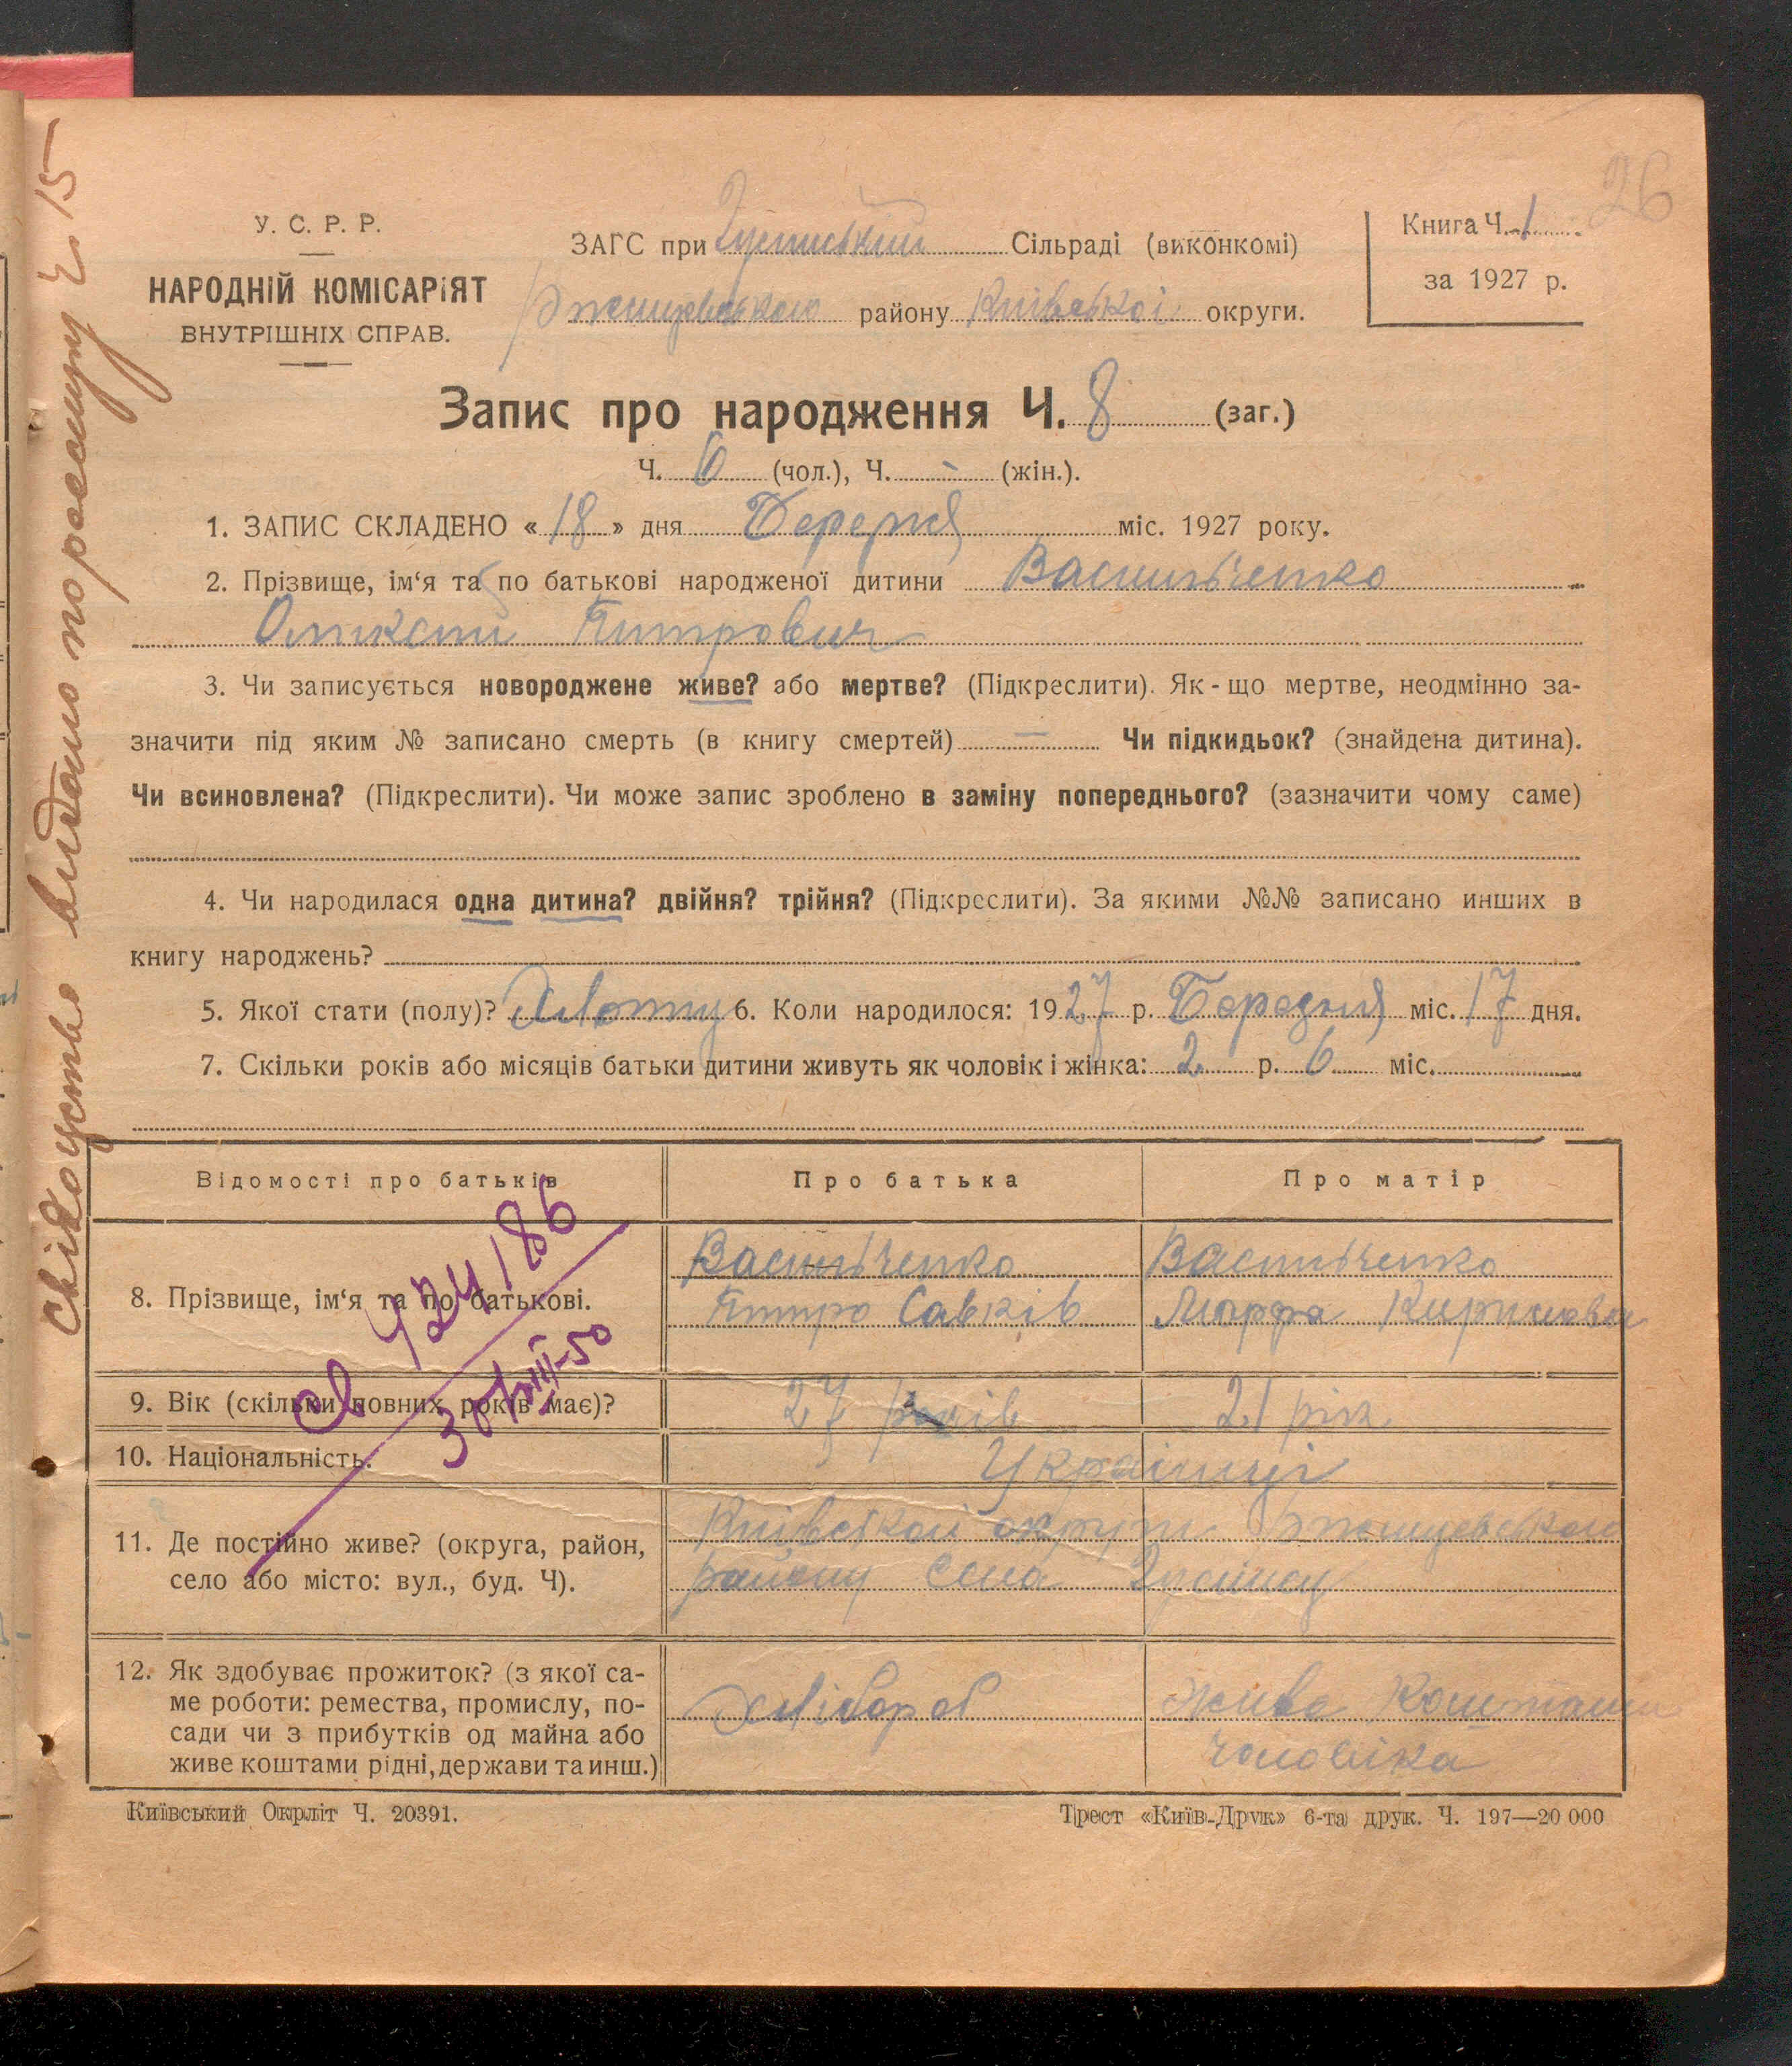 26
У. С. Р. Р.
НАРОДНІЙ КОМІСАРІЯТ
ВНУТРІШНІХ СПРАВ.
ЗАГС при Сільраді (виконкомі)
району Київської округи.
Книга Ч. 1
за 1927 р.
Запис про народження Ч. 8 (заг.)
Ч. 6 (чол.), Ч. - (жін.).
1. ЗАПИС СКЛАДЕНО «18» дня міс. 1927 року.
2. Прізвище, ім‘я та по батькові народженої дитини Васильченко
Олексій Питрович
3. Чи записується новороджене живе? або мертве? (Підкреслити). Як-що мертве, неодмінно за-
значити під яким № записано смерть (в книгу смертей) — Чи підкидьок? (знайдена дитина).
Чи всиновлена? (Підкреслити). Чи може запис зроблено в заміну попереднього? (зазначити чому саме)
4. Чи народилася одна дитина? двійня? трійня? (Підкреслити). За якими №№ записано инших в
книгу народжень?
5. Якої стати (полу)? 6. Коли народилося: 1927 р. Березня міс. 17 дня.
7. Скільки років або місяців батьки дитини живуть як чоловік і жінка: 2 р. 6 міс.
Відомості про батьків Про батька Про матір
8. Прізвище, ім‘я та по батькові.
Васильченко
Питро Савків
Васильченко
Марфа Кирилова
9. Вік (скільки повних років має)? 27 років 21 рік
10. Національність. Українці
11. Де постійно живе? (округа, район,
село або місто: вул., буд. Ч).
Київської округи
району села
12. Як здобуває прожиток? (з якої са-
ме роботи: ремества, промислу, по-
сади чи з прибутків од майна або
живе коштами рідні, держави та инш.)
Хлібороб
живе коштами
чоловіка
Київський Окрліт Ч. 20391.
Трест «Київ-Друк» 6-та друк. Ч. 197—20 000
видано по реєстру Ч. 15